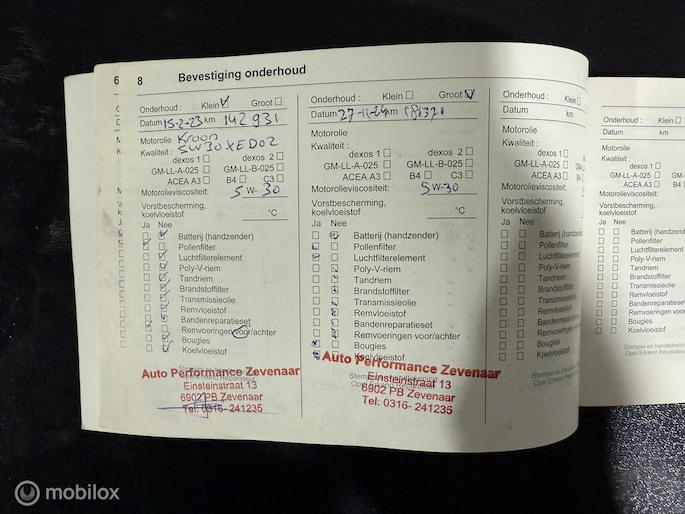 8 Bevestiging onderhoud
Onderhoud : Klein Groot
Datum 15-2-23 km 142931
Motorolie Kroon
Kwaliteit : 5W30XED02
dexos 1 dexos 2
GM-LL-A-025 GM-LL-B-025
ACEA A3 B4 C3
Motorolieviscositeit: 5 W- 30
Vorstbescherming,
koelvloeistof °C
Ja Nee
Batterij (handzender)
Pollenfilter
Luchtfilterelement
Poly-V-riem
Tandriem
Brandstoffilter
Transmissieolie
Remvloeistof
Bandenreparatieset
Remvoeringen voor/achter
Bougies
Koelvloeistof
Auto Performance Zevenaar
Einsteinstraat 13
6902 PB Zevenaar
Tel: 0316- 241235
Onderhoud : Klein Groot
Datum 27-11-24 km
Motorolie
Kwaliteit :
dexos 1 dexos 2
GM-LL-A-025 GM-LL-B-025
ACEA A3 B4 C3
Motorolieviscositeit: 5 W-30
Vorstbescherming,
koelvloeistof °C
Ja Nee
Batterij (handzender)
Pollenfilter
Luchtfilterelement
Poly-V-riem
Tandriem
Brandstoffilter
Transmissieolie
Remvloeistof
Bandenreparatieset
Remvoeringen voor/achter
Bougies
Koelvloeistof
Auto Performance Zevenaar
Einsteinstraat 13
6902 PB Zevenaar
Tel: 0316- 241235
Onderhoud : Klein
Datum km
Motorolie
Kwaliteit :
dexos 1
GM-LL-A-025
ACEA A3
Motorolieviscositeit:
Vorstbescherming,
koelvloeistof
Ja Nee
Batterij (handzender)
Pollenfilter
Luchtfilterelement
Poly-V-riem
Tandriem
Brandstoffilter
Transmissieolie
Remvloeistof
Bandenreparatieset
Remvoeringen
Bougies
Koelvloeistof
Onderhoud : Klein
Datum km
Motorolie
Kwaliteit :
dexos 1
GM-LL-A-025
ACEA A3
Motorolieviscositeit:
Vorstbescherming,
koelvloeistof
Ja Nee
Batterij (handzender)
Pollenfilter
Luchtfilterelement
Poly-V-riem
Tandriem
Brandstoffilter
Transmissieolie
Remvloeistof
Bandenreparatieset
Remvoeringen voor/
Bougies
Koelvloeistof
Stempel en handtekening
Opel Erkend Reparateur
mobilox